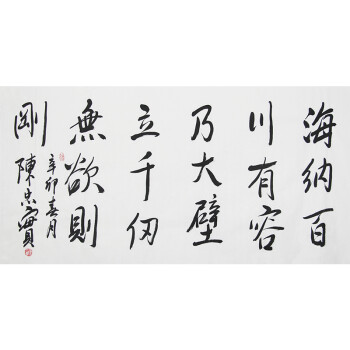 海納百
川有容
乃大壁
立千仞
無欲則
剛
辛卯春月
陳忠實